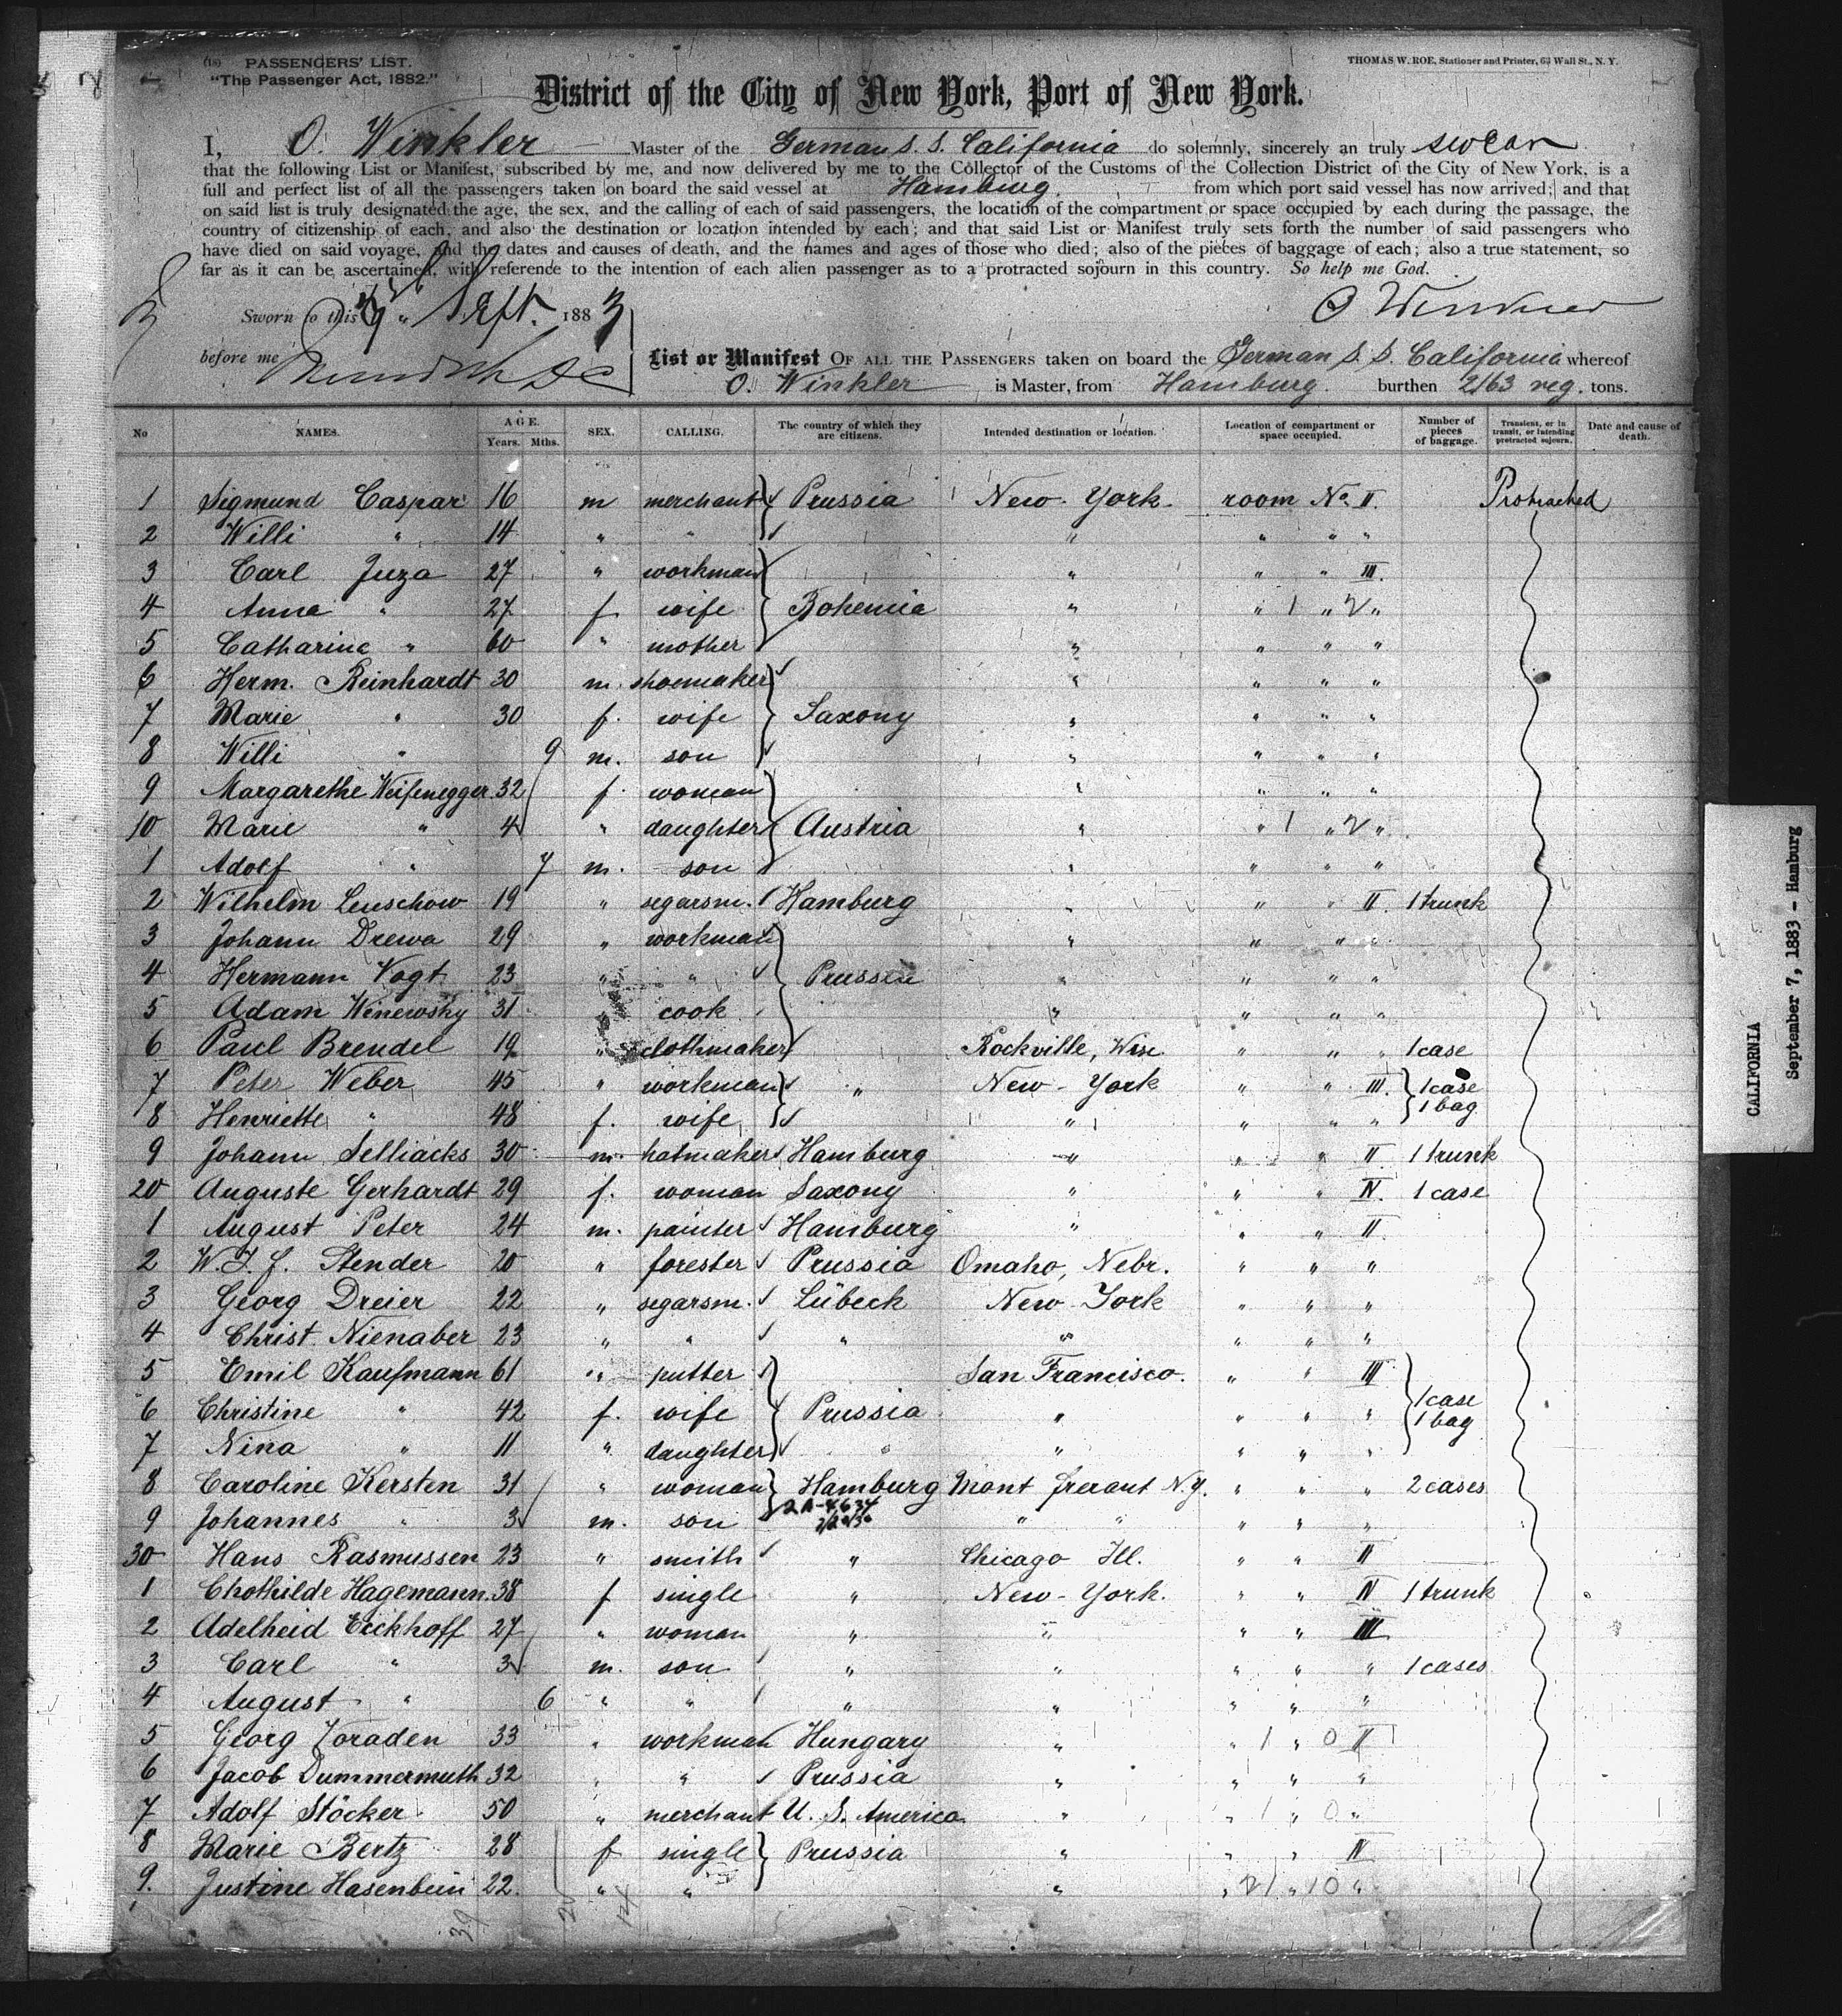 (18) PASSENGERS' LIST.
"The Passenger Act, 1882."
THOMAS W. ROE, Stationer and Printer, 63 Wall St., N. Y.
District of the City of New York, Port of New York.
I, O. Winkler Master of the German S. S. California do solemnly, sincerely an truly swear
that the following List or Manifest, subscribed by me, and now delivered by me to the Collector of the Customs of the Collection District of the City of New York, is a
full and perfect list of all the passengers taken on board the said vessel at Hamburg. from which port said vessel has now arrived; and that
on said list is truly designated the age, the sex, and the calling of each of said passengers, the location of the compartment or space occupied by each during the passage, the
country of citizenship of each, and also the destination or location intended by each; and that said List or Manifest truly sets forth the number of said passengers who
have died on said voyage, and the dates and causes of death, and the names and ages of those who died; also of the pieces of baggage of each; also a true statement, so
far as it can be ascertained, with reference to the intention of each alien passenger as to a protracted sojourn in this country. So help me God.
Sworn to this Sept. 1883
O Winkler
before me
List or Manifest OF ALL THE PASSENGERS taken on board the German S. S. California whereof
O. Winkler is Master, from Hamburg. burthen 2163 reg. tons.
No NAMES. AGE. Years. Mths. SEX. CALLING. The country of which they are citizens. Intended destination or location. Location of compartment or space occupied. Number of pieces of baggage. Transient, or in transit, or intending protracted sojourn. Date and cause of death.
1 Sigmund Caspar 16 m merchant Prussia New-York. room No. II. Protracted
2 Willi " 14 " " " " " "
3 Carl Juza 27 " workman " " " III.
4 Anna " 27 f wife Bohemia " " 1 " 2 "
5 Catharine " 60 " mother " " " "
6 Herm. Reinhardt 30 m. shoemaker " " " "
7 Marie " 30 f. wife Saxony " " " "
8 Willi " 9 m. son " " " "
9 Margarethe Weifenegger 32 f. woman " " " "
10 Marie " 4 " daughter Austria " " 1 " 2 "
1 Adolf " 7 m. son " " " "
2 Wilhelm Leuschow 19 " segarsm. Hamburg " " " II. 1 trunk
3 Johann Drewa 29 " workman " " " "
4 Hermann Vogt 23 " " Prussia " " " "
5 Adam Winewsky 31 " cook " " " "
6 Paul Brendel 19 " clothmaker Rockville, Wisc. " " " 1 case
7 Peter Weber 45 " workman " New-York " " III. 1 case
1 bag
8 Henriette " 48 f. wife " " " "
9 Johann Selliacks 30 m. hatmaker Hamburg " " " II. 1 trunk
20 Auguste Gerhardt 29 f. woman Saxony " " " IV. 1 case
1 August Peter 24 m. painter Hamburg " " " II
2 W. J. J. Stender 20 " forester Prussia Omaho, Nebr. " " "
3 Georg Dreier 22 " segarsm. Lübeck New-York " " "
4 Christ. Nienaber 23 " " " " " " "
5 Emil Kaufmann 61 " putter San Francisco. " " III
6 Christine " 42 f. wife Prussia " " " " 1 case
1 bag
7 Nina " 11 " daughter " " " " "
8 Caroline Kersten 31 " woman Hamburg Mont N.Y. " " " 2 cases
9 Johannes " 3 m. son " " " " "
30 Hans Rasmussen 23 " smith " Chicago Ill. " " II
1 Chothilde Hagemann 38 f single " New-York. " " IV 1 trunk
2 Adelheid Eickhoff 27 " woman " " " " III
3 Carl " 3 m. son " " " " " 1 cases
4 August " 6 " " " " " " "
5 Georg Zoraden 33 " workman Hungary " " 1 " 0 II
6 Jacob Dummermuth 32 " " Prussia " " " "
7 Adolf Stöcker 50 " merchant U. S. America " " 1 " 0 "
8 Marie Bertz 28 f single Prussia " " " IV
9. Justine Hasenbein 22. " " " " 21 " 10 "
39
CALIFORNIA
September 7, 1883 - Hamburg